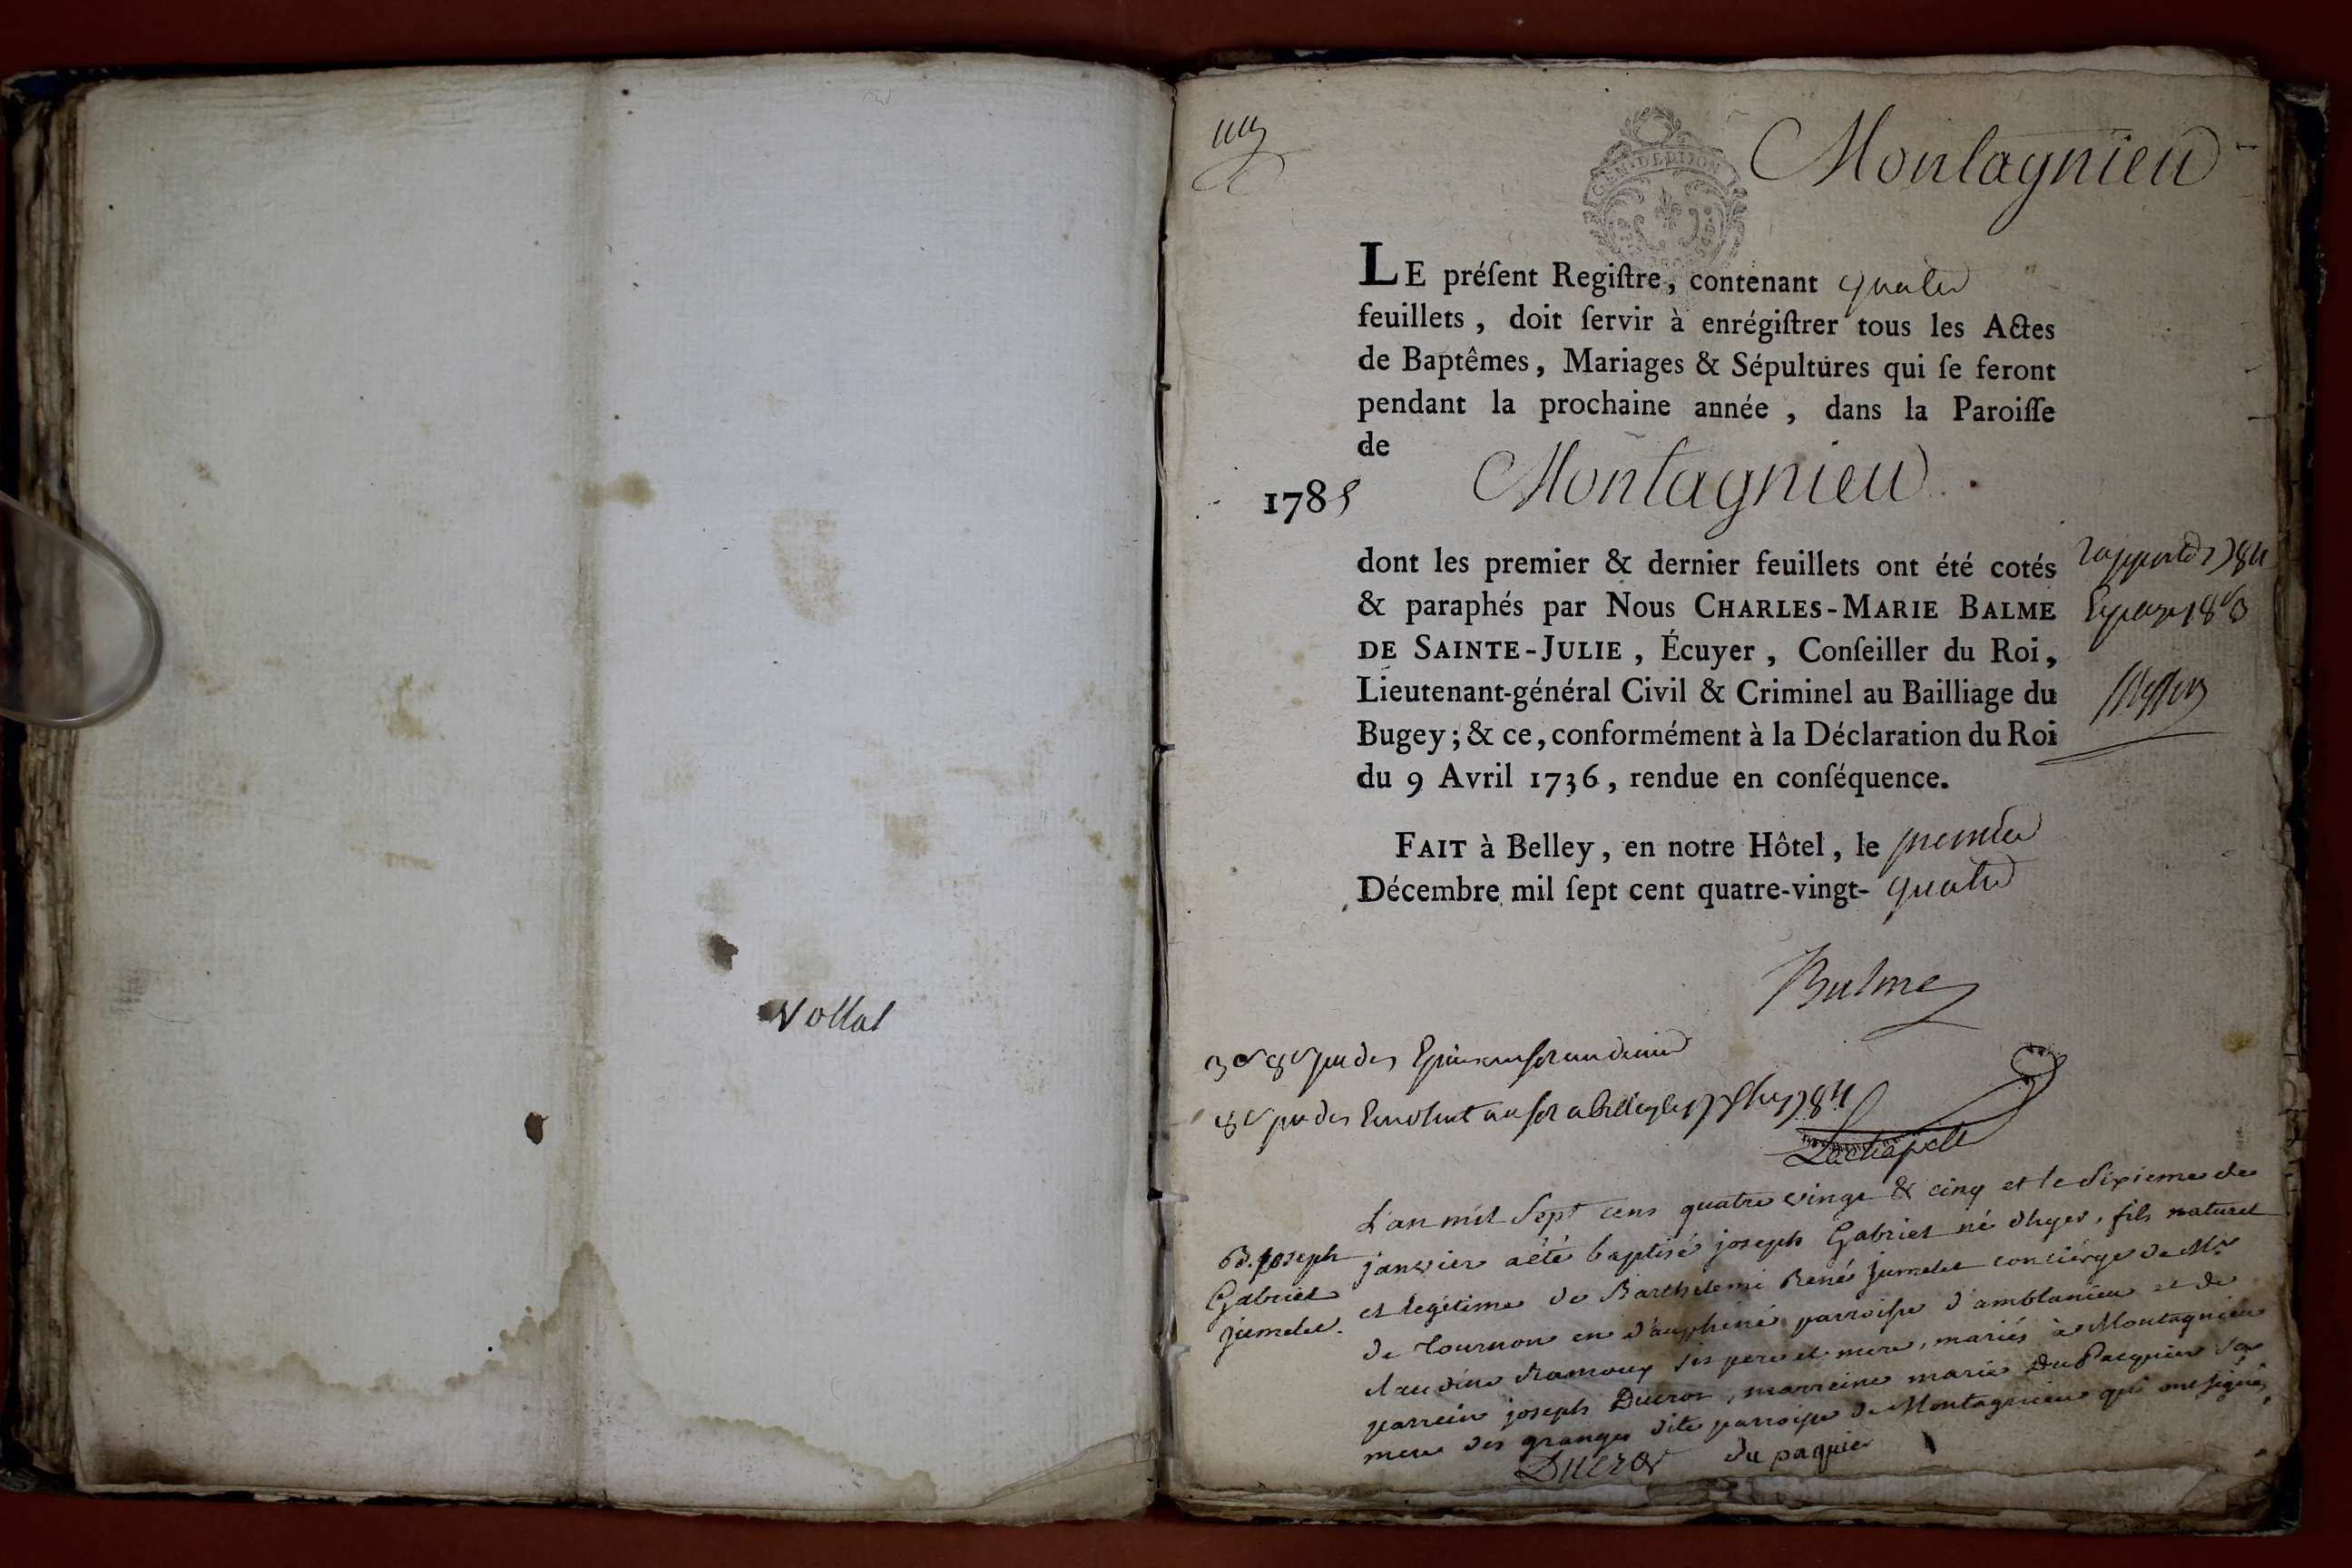 Vollat
Montagnieu
GEN. DE DIJON
LE préſent Regiſtre, contenant quatre
feuillets, doit ſervir à enrégiſtrer tous les Actes
de Baptêmes, Mariages & Sépultures qui ſe feront
pendant la prochaine année, dans la Paroiſſe
de
1785 Montagnieu
dont les premier & dernier feuillets ont été cotés
& paraphés par Nous CHARLES-MARIE BALME
DE SAINTE-JULIE, Écuyer, Conſeiller du Roi,
Lieutenant-général Civil & Criminel au Bailliage du
Bugey; & ce, conformément à la Déclaration du Roi
du 9 Avril 1736, rendue en conſéquence.
FAIT à Belley, en notre Hôtel, le premier
Décembre mil ſept cent quatre-vingt-quatre
Balme
Lachapelle
B. joseph
Gabriel
jumelet.
L'an mil Sept cens quatre vingt & cinq et le Sixieme de
janvier a été baptisé joseph Gabriel né d'hyer, fils naturel
et legitime de Barthelemi René jumelet concièrge de Mr
de tournon en Dauphiné parroisse d'amblanieu et de
claudine Ramoux ses pere et mere, mariés à Montagnieu
parrein joseph Ducros, marreine marie Du Pasquier
mere des granges dite parroisse de Montagnieu qui ont signés
Ducros du paquier